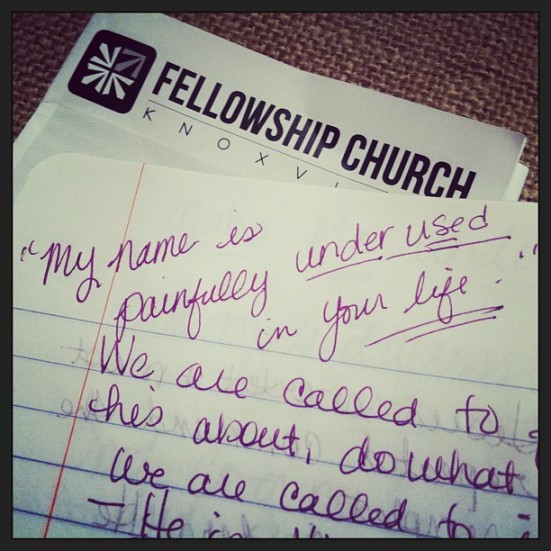 FELLOWSHIP CHURCH
KNOXVI
"My name is under used
painfully
in your life."
We are called to
this about, do what
We are called to
- He is